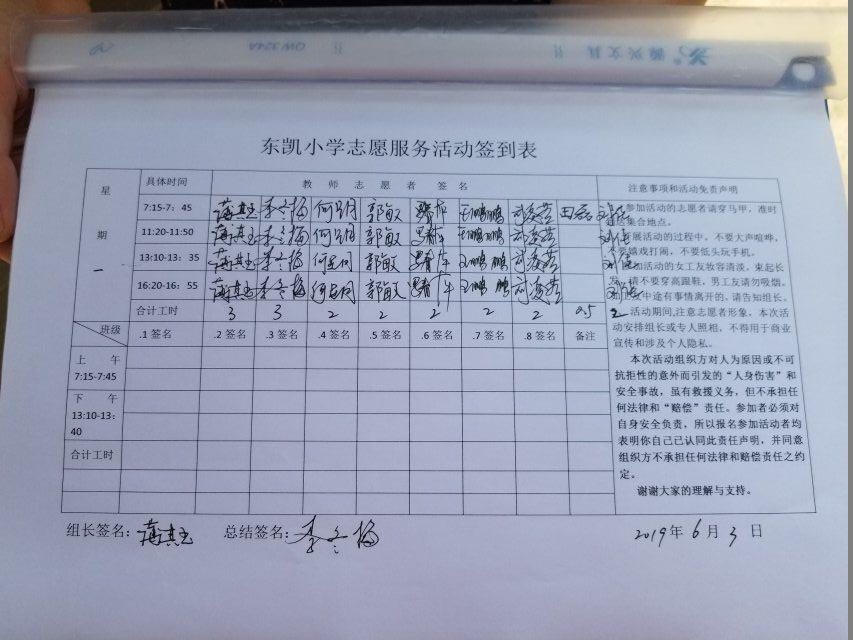 东凯小学志愿服务活动签到表
星期一 具体时间 教师志愿者签名 注意事项和活动免责声明
7:15-7:45 李冬梅 郭敏 王鹏鹏
11:20-11:50 李冬梅 郭敏 王鹏鹏
13:10-13:35 李冬梅 郭敏 王鹏鹏
16:20-16:55 李冬梅 郭敏 王鹏鹏
合计工时 3 3 2 2 2 2 2 0.5 2
班级 .1 签名 .2 签名 .3 签名 .4 签名 .5 签名 .6 签名 .7 签名 .8 签名 备注
上 午
7:15-7:45
下 午
13:10-13:
40
合计工时
参加活动的志愿者请穿马甲，准时
集合地点。
开展活动的过程中，不要大声喧哗，
不要嬉戏打闹，不要低头玩手机。
参加活动的女工友妆容清淡，束起长
发，请不要穿高跟鞋，男工友请勿吸烟。
中途有事情离开的，请告知组长。
活动期间,注意志愿者形象，本次活
动安排组长或专人照相，不得用于商业
宣传和涉及个人隐私。
本次活动组织方对人为原因或不可
抗拒性的意外而引发的“人身伤害”和
安全事故，虽有救援义务，但不承担任
何法律和“赔偿”责任。参加者必须对
自身安全负责，所以报名参加活动者均
表明你自己已认同此责任声明，并同意
组织方不承担任何法律和赔偿责任之约
定。
谢谢大家的理解与支持。
组长签名: 总结签名: 李冬梅 2019年 6月 3日